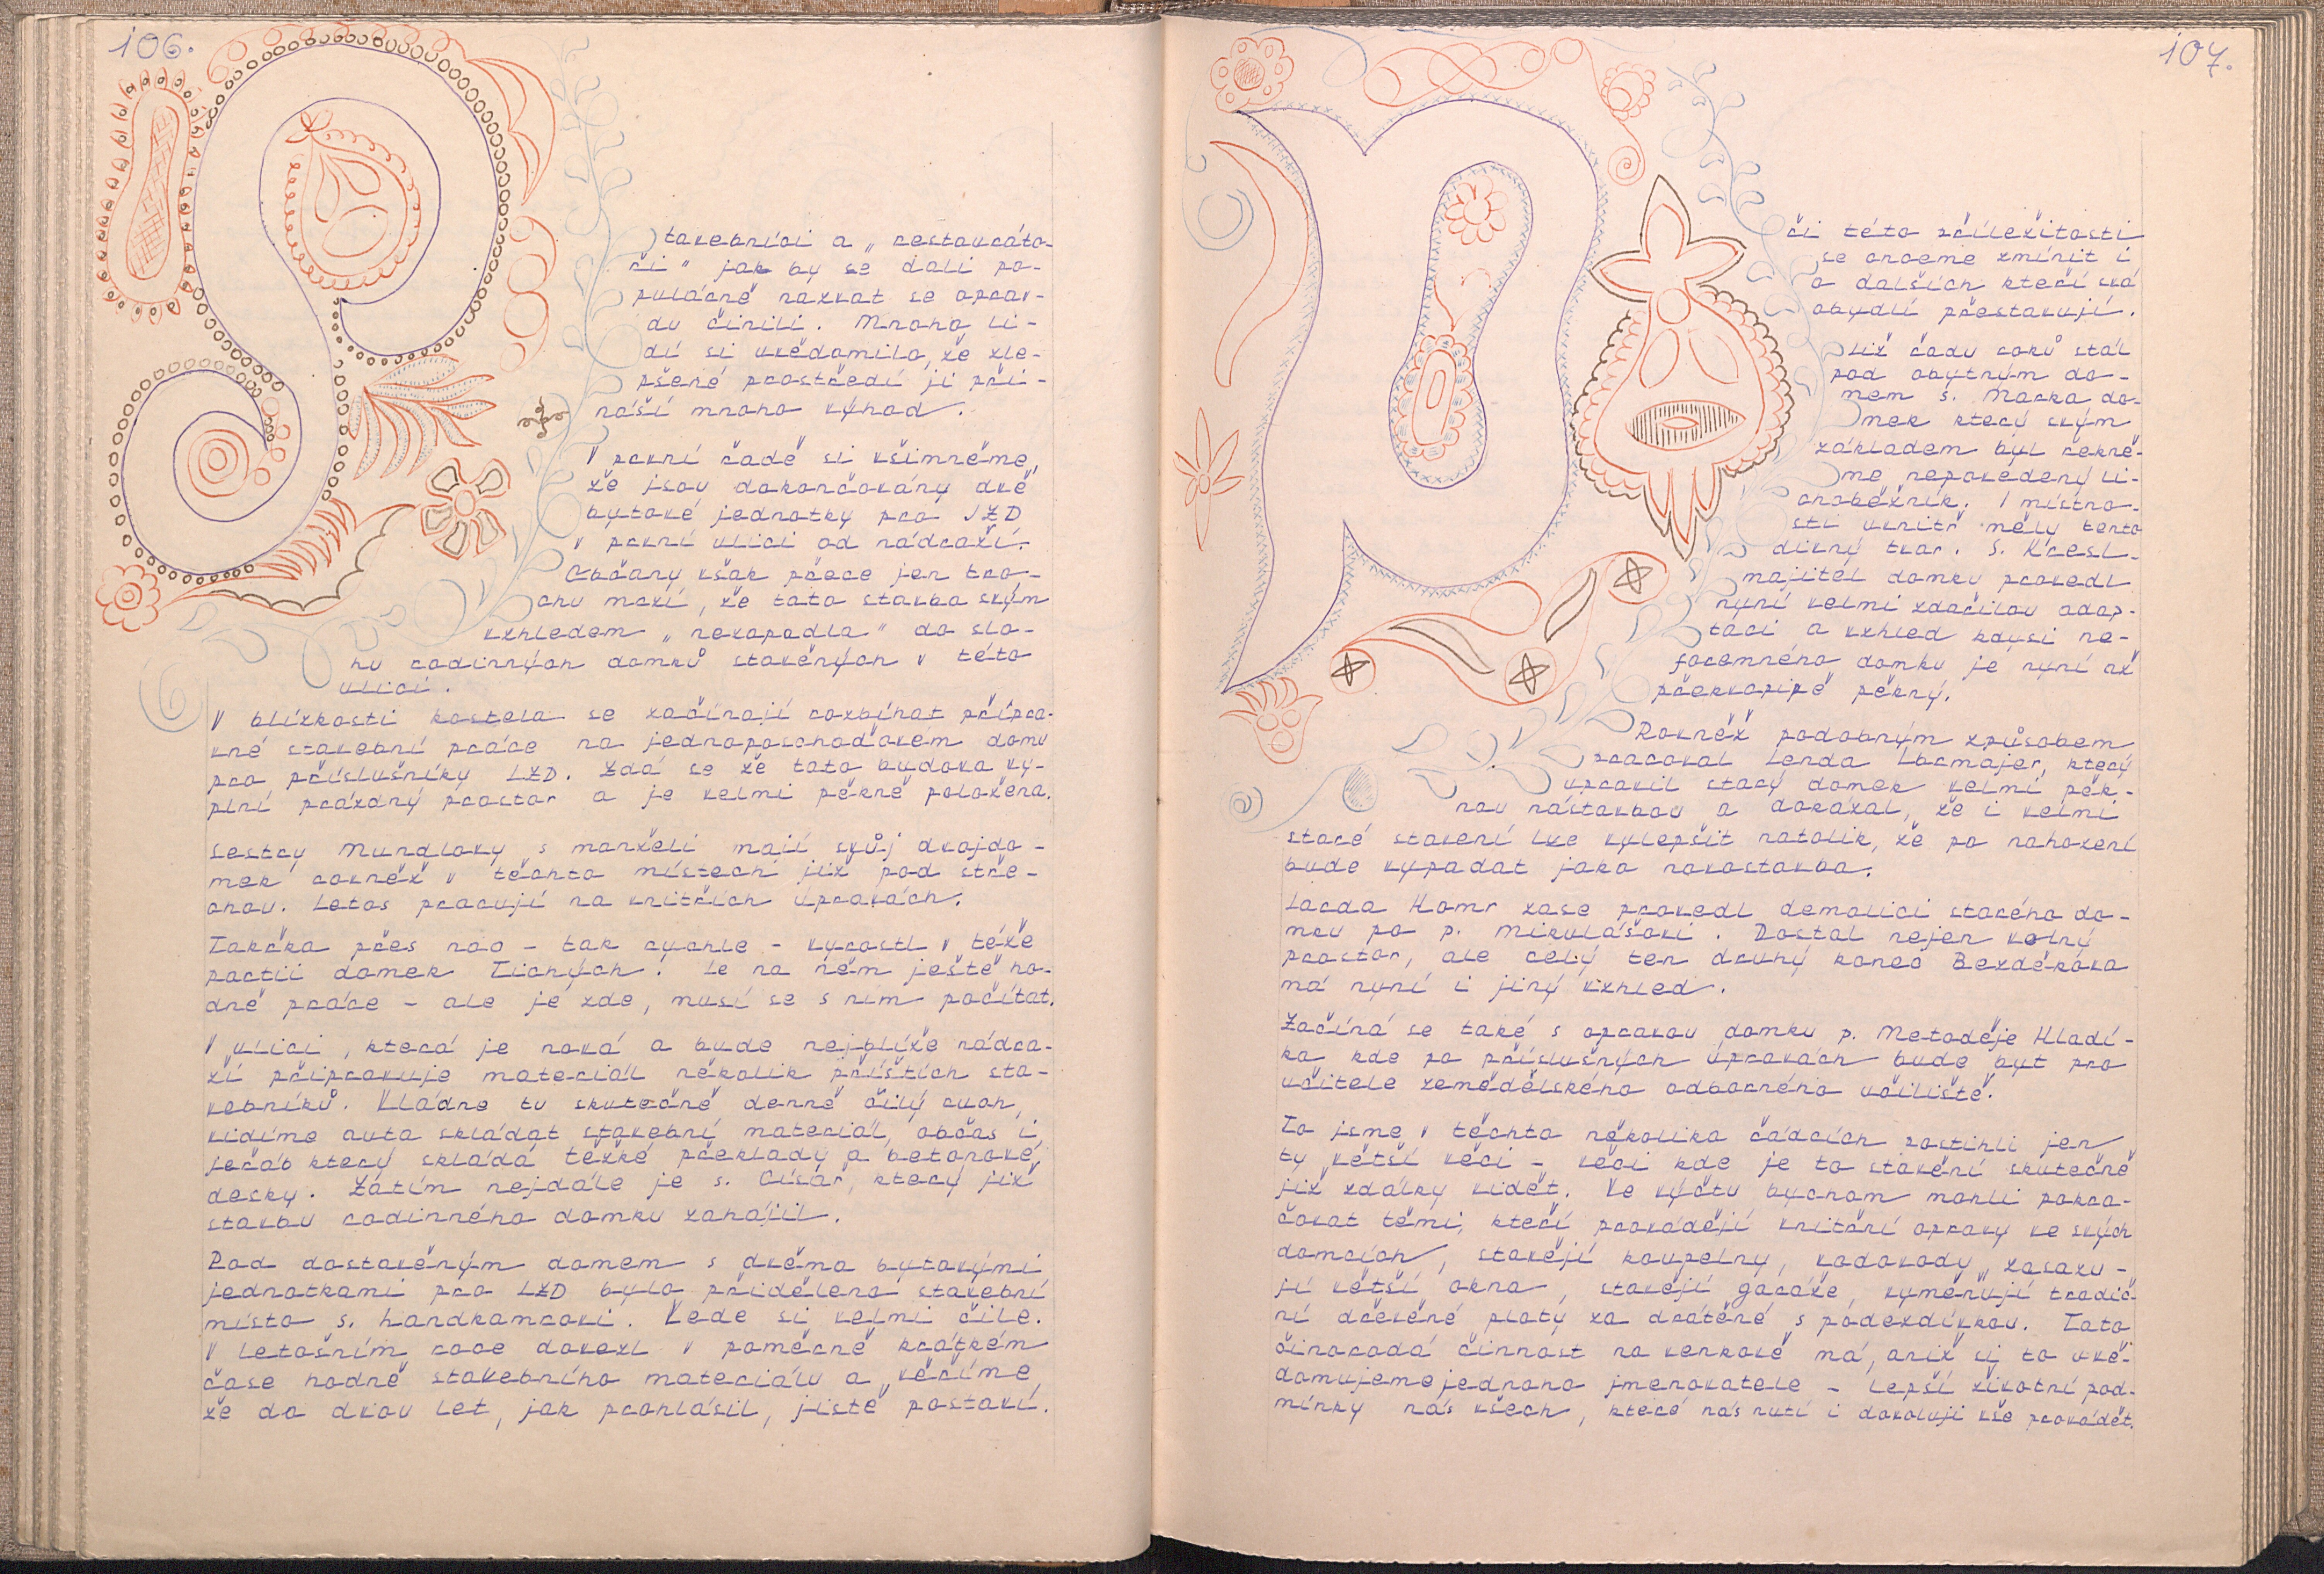 106.
Stavebníci a „ restauráto-
ři " jak by se dali po-
pulárně nazvat se oprav-
du činili. Mnoho li-
dí si uvědomilo, že zle-
pšené prostředí ji při-
náší mnoho výhod.
V první řadě si všimněme,
že jsou dokončovány dvě
bytové jednotky pro JZD
v první ulici od nádraží.
Občany však přece jen tro-
chu mrzí, že tato stavba svým
vzhledem „ nezapadla " do slo-
hu rodinných domků stavěných v této
ulici.
V blízkosti kostela se začínají rozbíhat přípra-
vné stavební práce na jednoposchoďovém domu
pro příslušníky LZD. Zdá se že tato budova vy-
plní prázdný prostor a je velmi pěkně položena.
Sestry Mundlovy s manželi mají svůj dvojdo-
mek rovněž v těchto místech již pod stře-
chou. Letos pracují na vnitřích úpravách.
Takřka přes noc - tak rychle - vyrostl v téže
partii domek Tichých. Je na něm ještě ho-
dně práce - ale je zde, musí se s ním počítat.
V ulici, která je nová a bude nejblíže nádra-
ží připravuje materiál několik příštích sta-
vebníků. Vládne tu skutečně denně čilý ruch,
vidíme auta skládat stavební materiál, občas i
jeřáb který skládá těžké překlady a betonové
desky. Zatím nejdále je s. Císař, který již
stavbu rodinného domku zahájil.
Pod dostavěným domem s dvěma bytovými
jednotkami pro LZD bylo přiděleno stavební
místo s. Handkamrovi. Vede si velmi čile.
V letošním roce dovezl v poměrně krátkém
čase hodně stavebního materiálu a věříme,
že do dvou let, jak prohlásil, jistě postaví.
107.
Při této příležitosti
se chceme zmínit i
o dalších kteří svá
obydlí přestavují.
Již řadu roků stál
pod obytným do-
mem s. Macka do-
mek který svým
základem byl řekně-
me nepovedený li-
choběžník. I místno-
sti uvnitř měly tento
divný tvar. S. Kresl-
majitel domku provedl
nyní velmi zdařilou adap-
taci a vzhled kdysi ne-
foremného domku je nyní až
překvapivě pěkný.
Rovněž podobným způsobem
pracoval Lenda Lbrmajer, který
upravil starý domek velmi pěk-
nou nástavbou a dokázal, že i velmi
staré stavení lze vylepšit natolik, že po nahození
bude vypadat jako novostavba.
Jarda Homr zase provedl demolici starého do-
mku po p. Mikulášovi. Dostal nejen volný
prostor, ale celý ten druhý konec Bezděkova
má nyní i jiný vzhled.
Začíná se také s opravou domku p. Metoděje Hladí-
ka kde po příslušných úpravách bude byt pro
učitele zemědělského odborného učiliště.
To jsme v těchto několika řádcích postihli jen
ty větší věci - věci kde je to stavění skutečně
již zdálky vidět. Ve výčtu bychom mohli pokra-
čovat těmi, kteří provádějí vnitřní opravy ve svých
domcích, stavějí koupelny, vodovody, zasazu-
jí větší okna, stavějí garáže, vyměňují tradič-
ní dřevěné ploty za drátěné s podezdívkou. Tato
činorodá činnost na venkově má, aniž si to uvě-
domujeme jednoho jmenovatele - lepší životní pod-
mínky nás všech, které nás nutí i dovolují vše provádět.